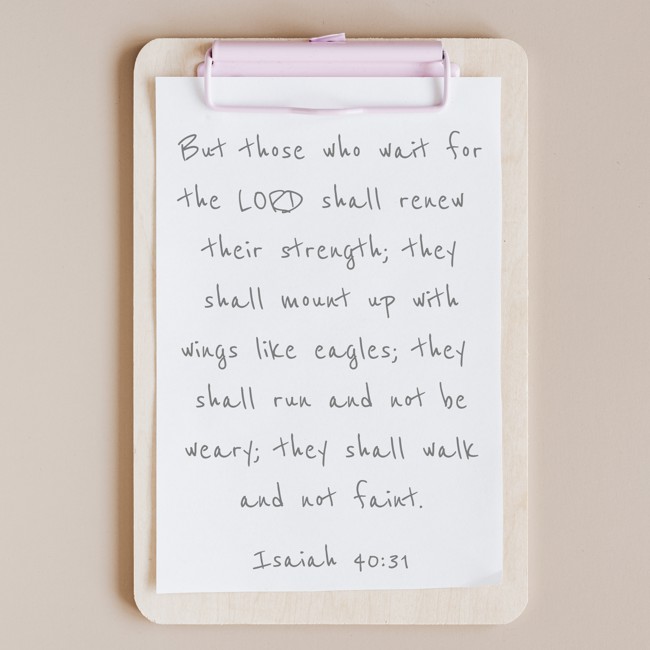 But those who wait for
the LORD shall renew
their strength; they
shall mount up with
wings like eagles; they
shall run and not be
weary; they shall walk
and not faint.
Isaiah 40:31